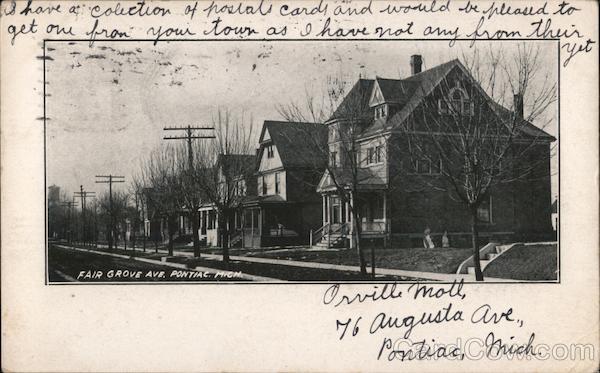 I have a colection of postals cards and would be pleased to
get one fron your town as I have not any from their
yet
FAIR GROVE AVE. PONTIAC. MICH.
Orville Moll,
76 Augusta Ave.,
Pontiac, Mich.
CardCow.com